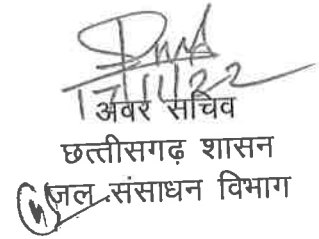 17/11/22
अवर सचिव
छत्तीसगढ़ शासन
जल संसाधन विभाग